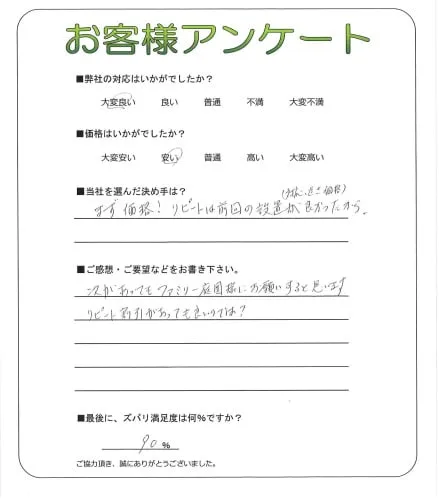 お客様アンケート
■弊社の対応はいかがでしたか？
大変良い 良い 普通 不満 大変不満
■価格はいかがでしたか？
大変安い 安い 普通 高い 大変高い
■当社を選んだ決め手は？
まず価格！リピートは前回の設置が良かったから。
■ご感想・ご要望などをお書き下さい。
次があってもファミリー庭園様にお願いすると思います
リピート割引があっても良いのでは？
■最後に、ズバリ満足度は何％ですか？
90 %
ご協力頂き、誠にありがとうございました。